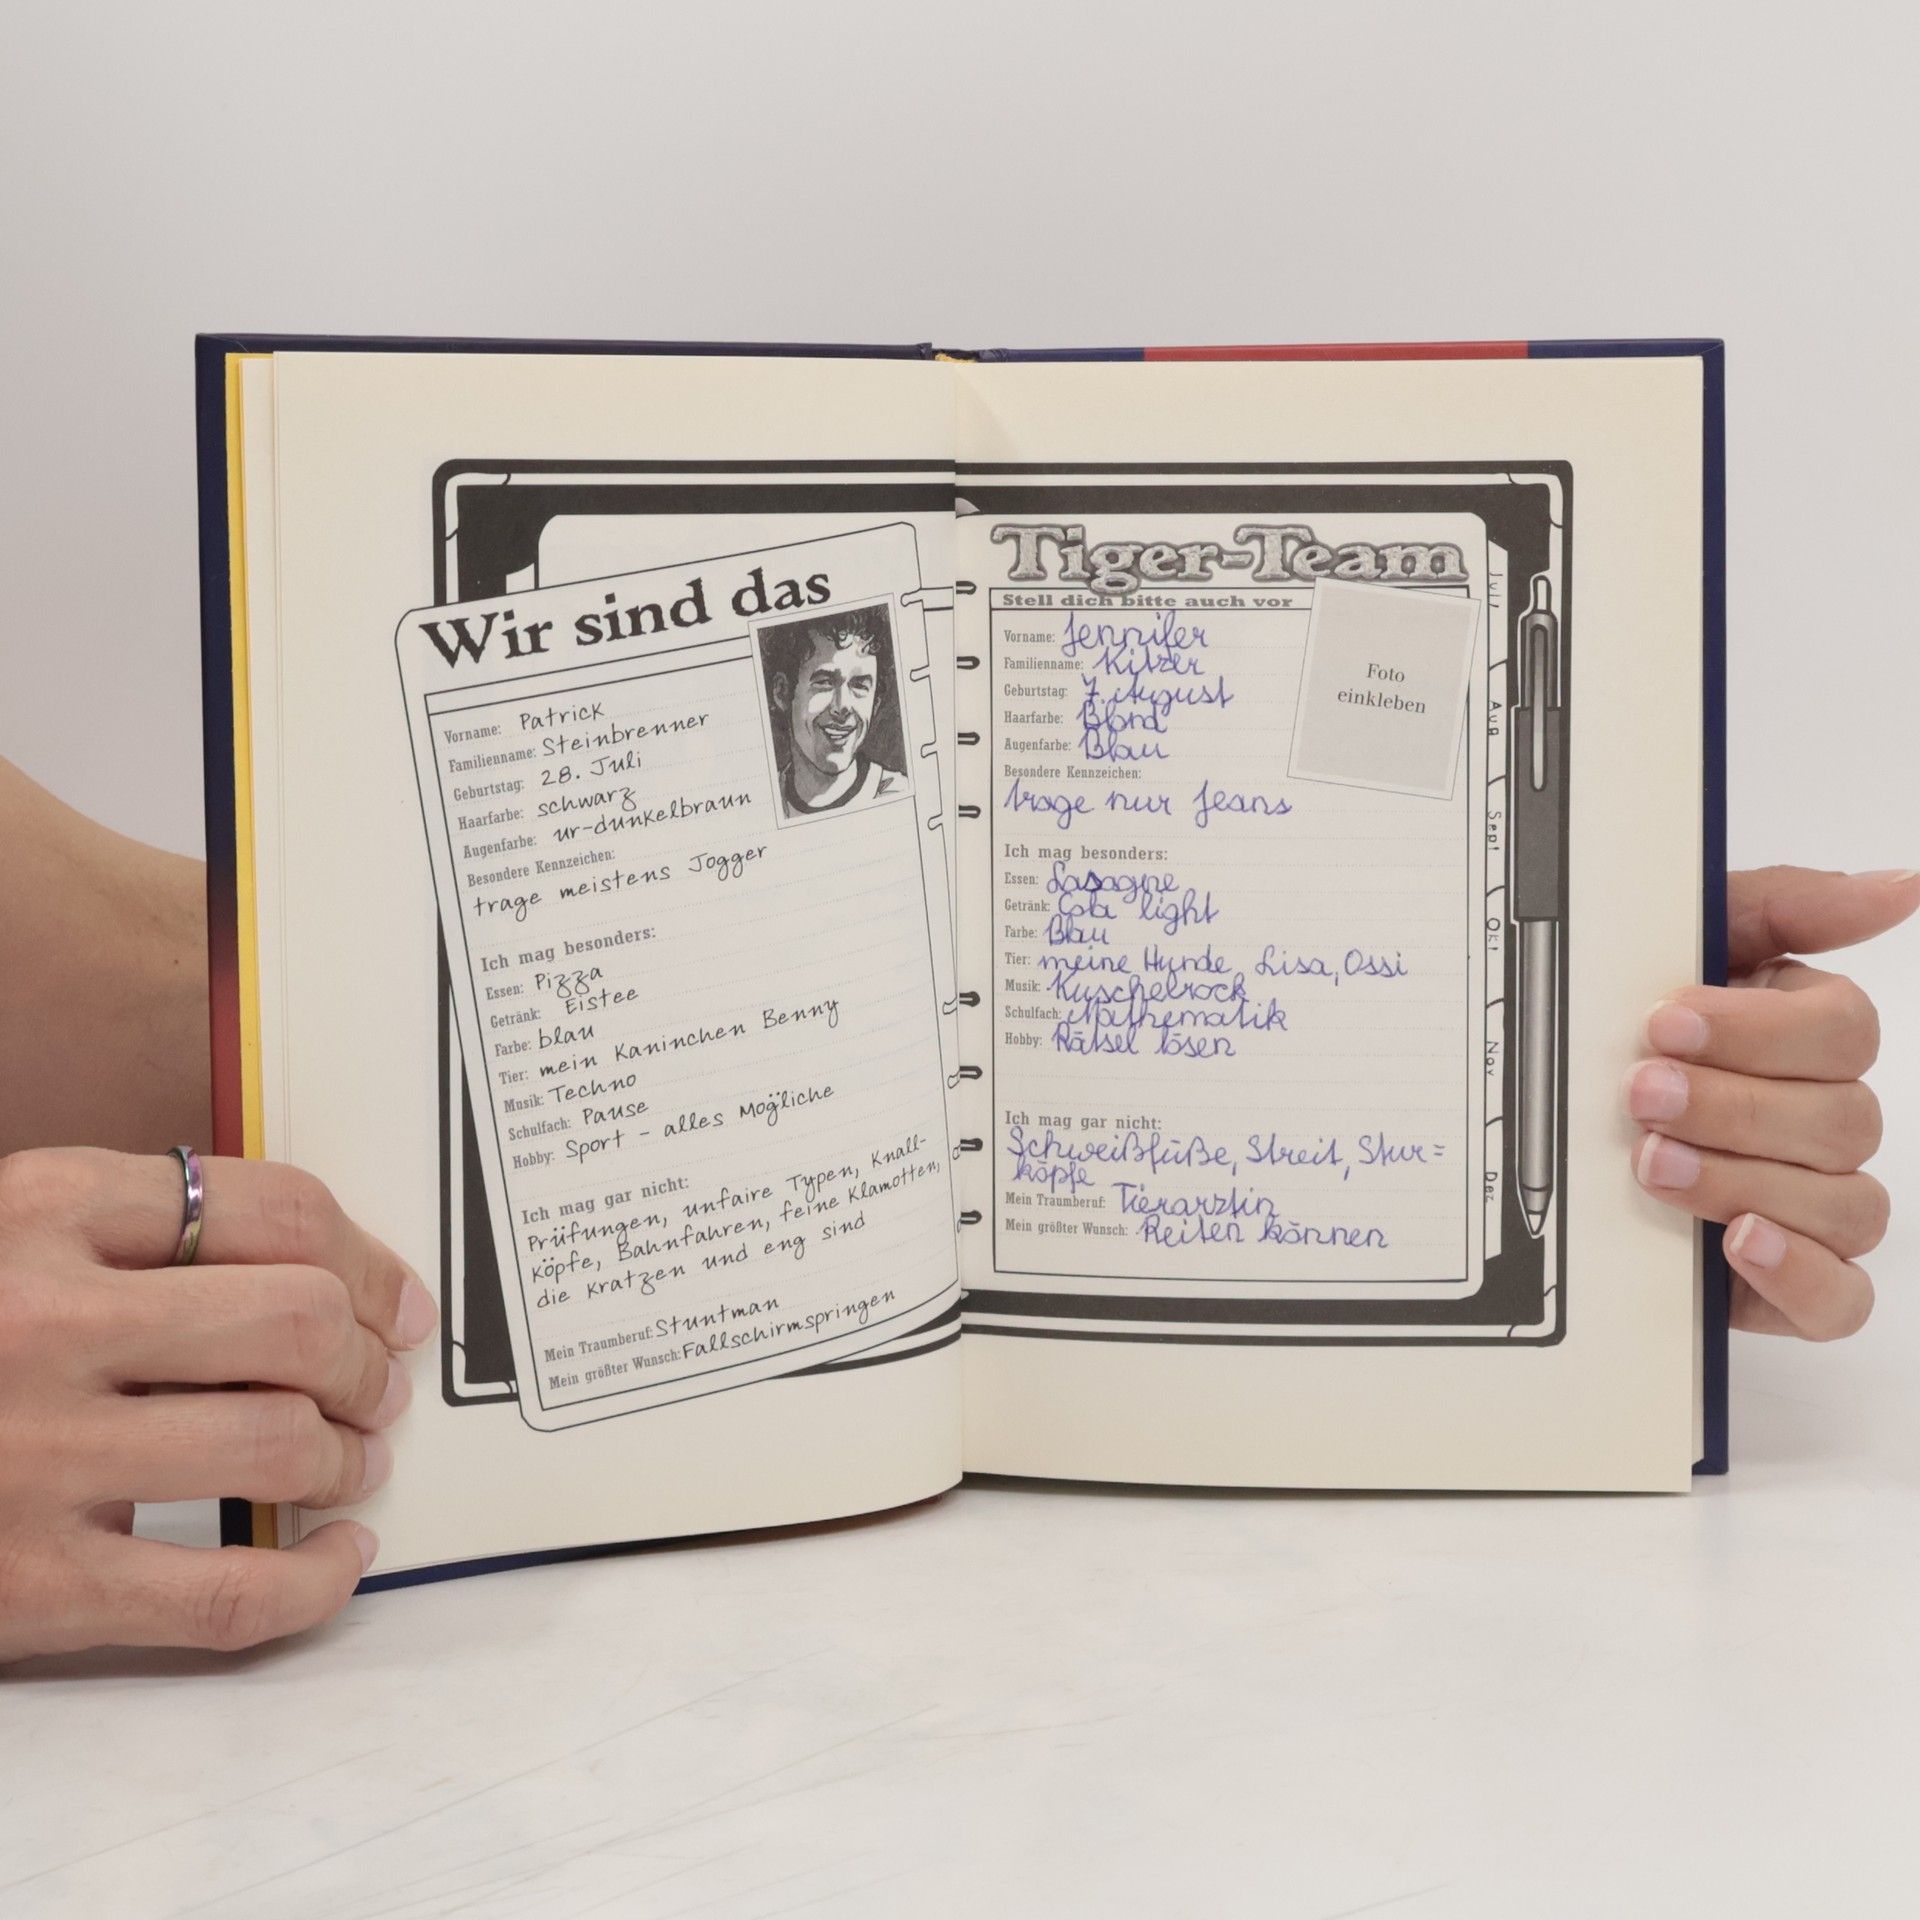 Wir sind das
Vorname: Patrick
Familienname: Steinbrenner
Geburtstag: 28. Juli
Haarfarbe: schwarz
Augenfarbe: ur-dunkelbraun
Besondere Kennzeichen:
trage meistens Jogger
Ich mag besonders:
Essen: Pizza
Getränk: Eistee
Farbe: blau
Tier: mein Kaninchen Benny
Musik: Techno
Schulfach: Pause
Hobby: Sport - alles Mögliche
Ich mag gar nicht:
Prüfungen, unfaire Typen, Knall-
köpfe, Bahnfahren, feine Klamotten,
die kratzen und eng sind
Mein Traumberuf: Stuntman
Mein größter Wunsch: Fallschirmspringen
Tiger-Team
Stell dich bitte auch vor
Vorname: Jennifer
Familienname: Kitzer
Geburtstag: 7. August
Haarfarbe: Blond
Augenfarbe: Blau
Besondere Kennzeichen:
trage nur Jeans
Ich mag besonders:
Essen: Lasagne
Getränk: Cola light
Farbe: Blau
Tier: meine Hunde, Lisa, Ossi
Musik: Kuschelrock
Schulfach: Mathematik
Hobby: Rätsel lösen
Ich mag gar nicht:
Schweißfüße, Streit, Stur=
köpfe
Mein Traumberuf: Tierarztin
Mein größter Wunsch: Reiten können
Foto
einkleben
Juli
Aug
Sept
Okt
Nov
Dez